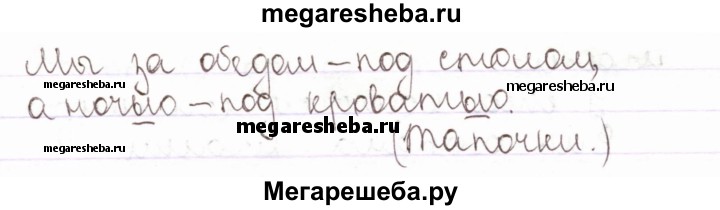 megaresheba.ru
Мы за обедом – под столом, megaresheba.ru
а ночью – под кроватью.
megaresheba.ru
megaresheba.ru (Тапочки.)
Мегарешеба.ру